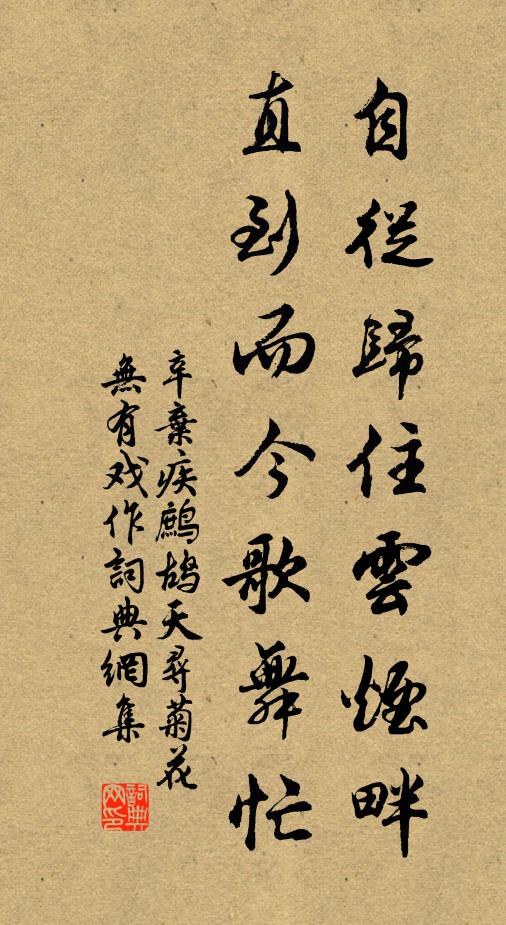 自從歸住雲煙畔
直到而今歌舞忙
辛棄疾鷓鴣天尋菊花
無有戏作詞典網集
詞典网印